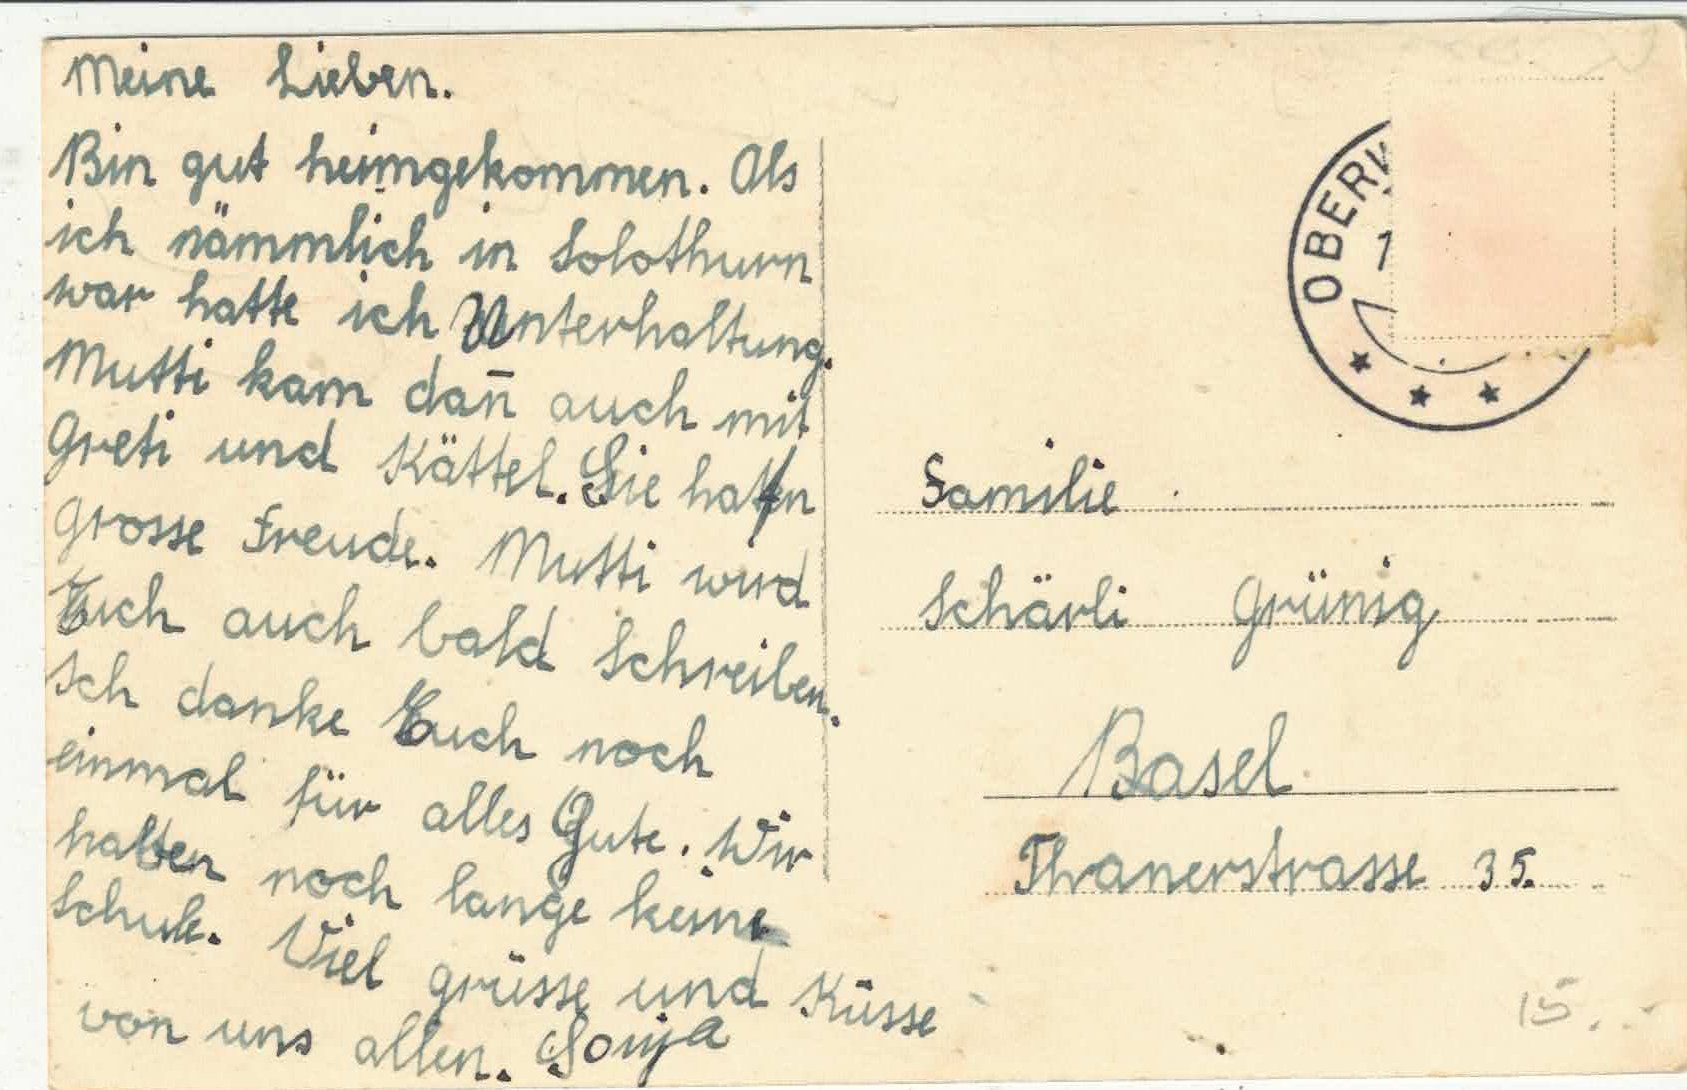 Meine Lieben.
Bin gut heimgekommen. Als
ich nämmlich in Solothurn
war hatte ich Unterhaltung.
Mutti kam dan̄ auch mit
Greti und Kättel. Sie hatten
grosse Freude. Mutti wird
Euch auch bald schreiben.
Ich danke Euch noch
einmal für alles Gute. Wir
haben noch lange keine
Schule. Viel grüsse und Küsse
von uns allen. Sonja
OBER
1
Familie
Schärli Grünig
Basel
Thanerstrasse 35.
15.